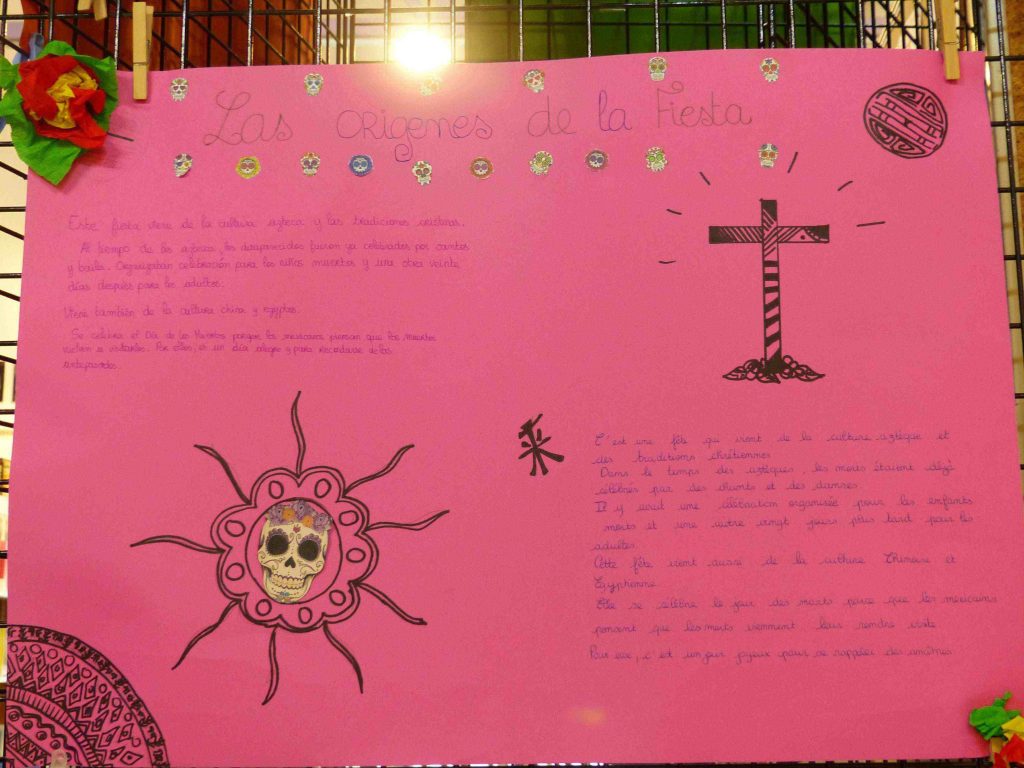 Las origenes de la Fiesta
Este fiesta viene de la cultura azteca y las tradiciones cristinas.
Al tiempo de los aztecas, los desaparecidos fueron ya celebrados por cantos
y baile. Organizaban celebración para los niños muertos y una otra veinte
días después para los adultos.
Viene también de la cultura china y egyptas.
Se celebra el Día de los Muertos porque los mexicanos piensan que los muertos
visitarles. Por ellos, es un día alegre y para recordarse de los
antepasados.
采
C'est une fête qui vient de la culture aztèque et
des traditions chrétiennes
Dans le temps des aztèques, les morts étaient déjà
célébrés par des chants et des danses.
Il y avait une célébration organisée pour les enfants
morts et une autre vingt jours plus tard pour les
adultes.
Cette fête vient aussi de la culture Chinoise et
Egyptienne
Elle se célèbre le jour des morts parce que les mexicains
pensent que les morts viennent leur rendre visite
Pour eux, c'est un jour joyeux pour se rappeler des ancêtres